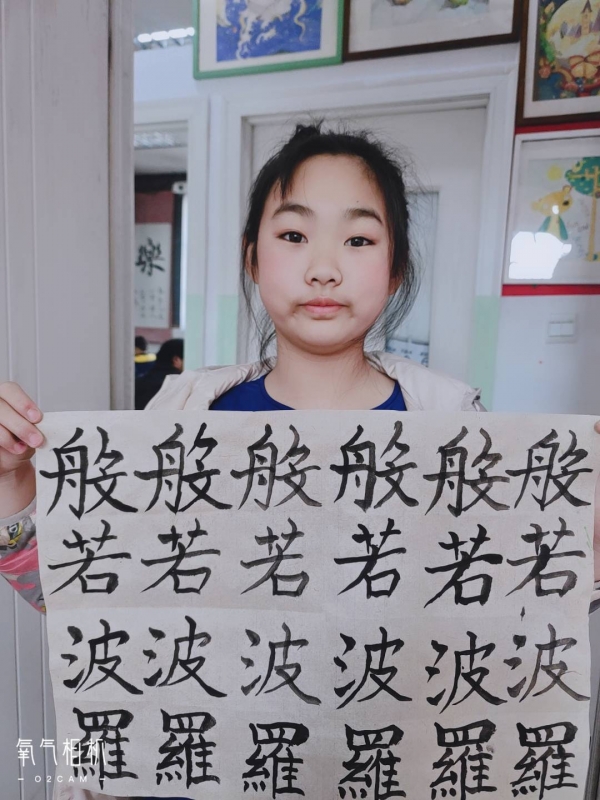 樂
般般般般般般
若若若若若若
波波波波波波
羅羅羅羅羅羅
氧气相机
O2CAM